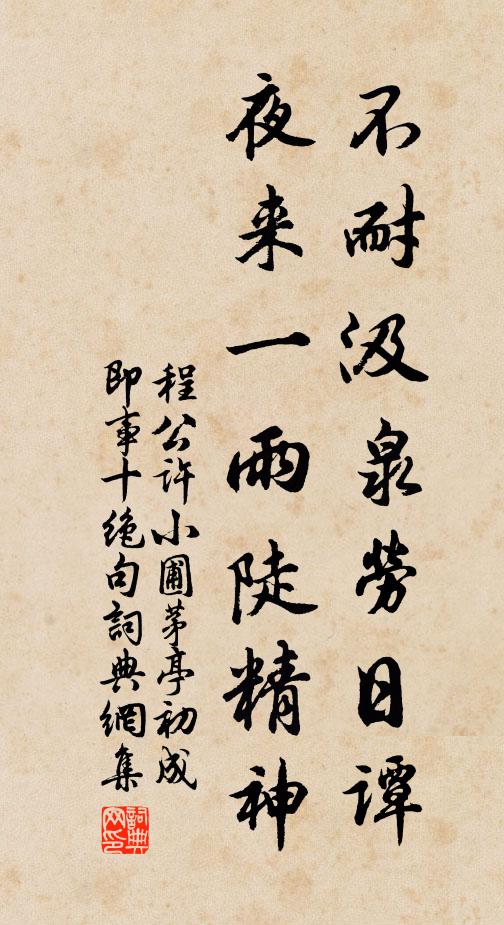 不耐汲泉勞日譚
夜来一雨陡精神
程公許小圃茅亭初成
即事十絶句詞典網集
詞典
网印